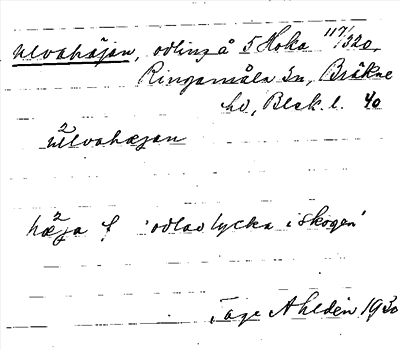 Ulvahäjan, odling å 5 Hoka 117/320,
Ringamåla sn, Bräkne
hd, Blek. l. 40
2
ulvahæjan
2
hæja f. 'odlad lycka i skogen'
Tage Ahldén 1930